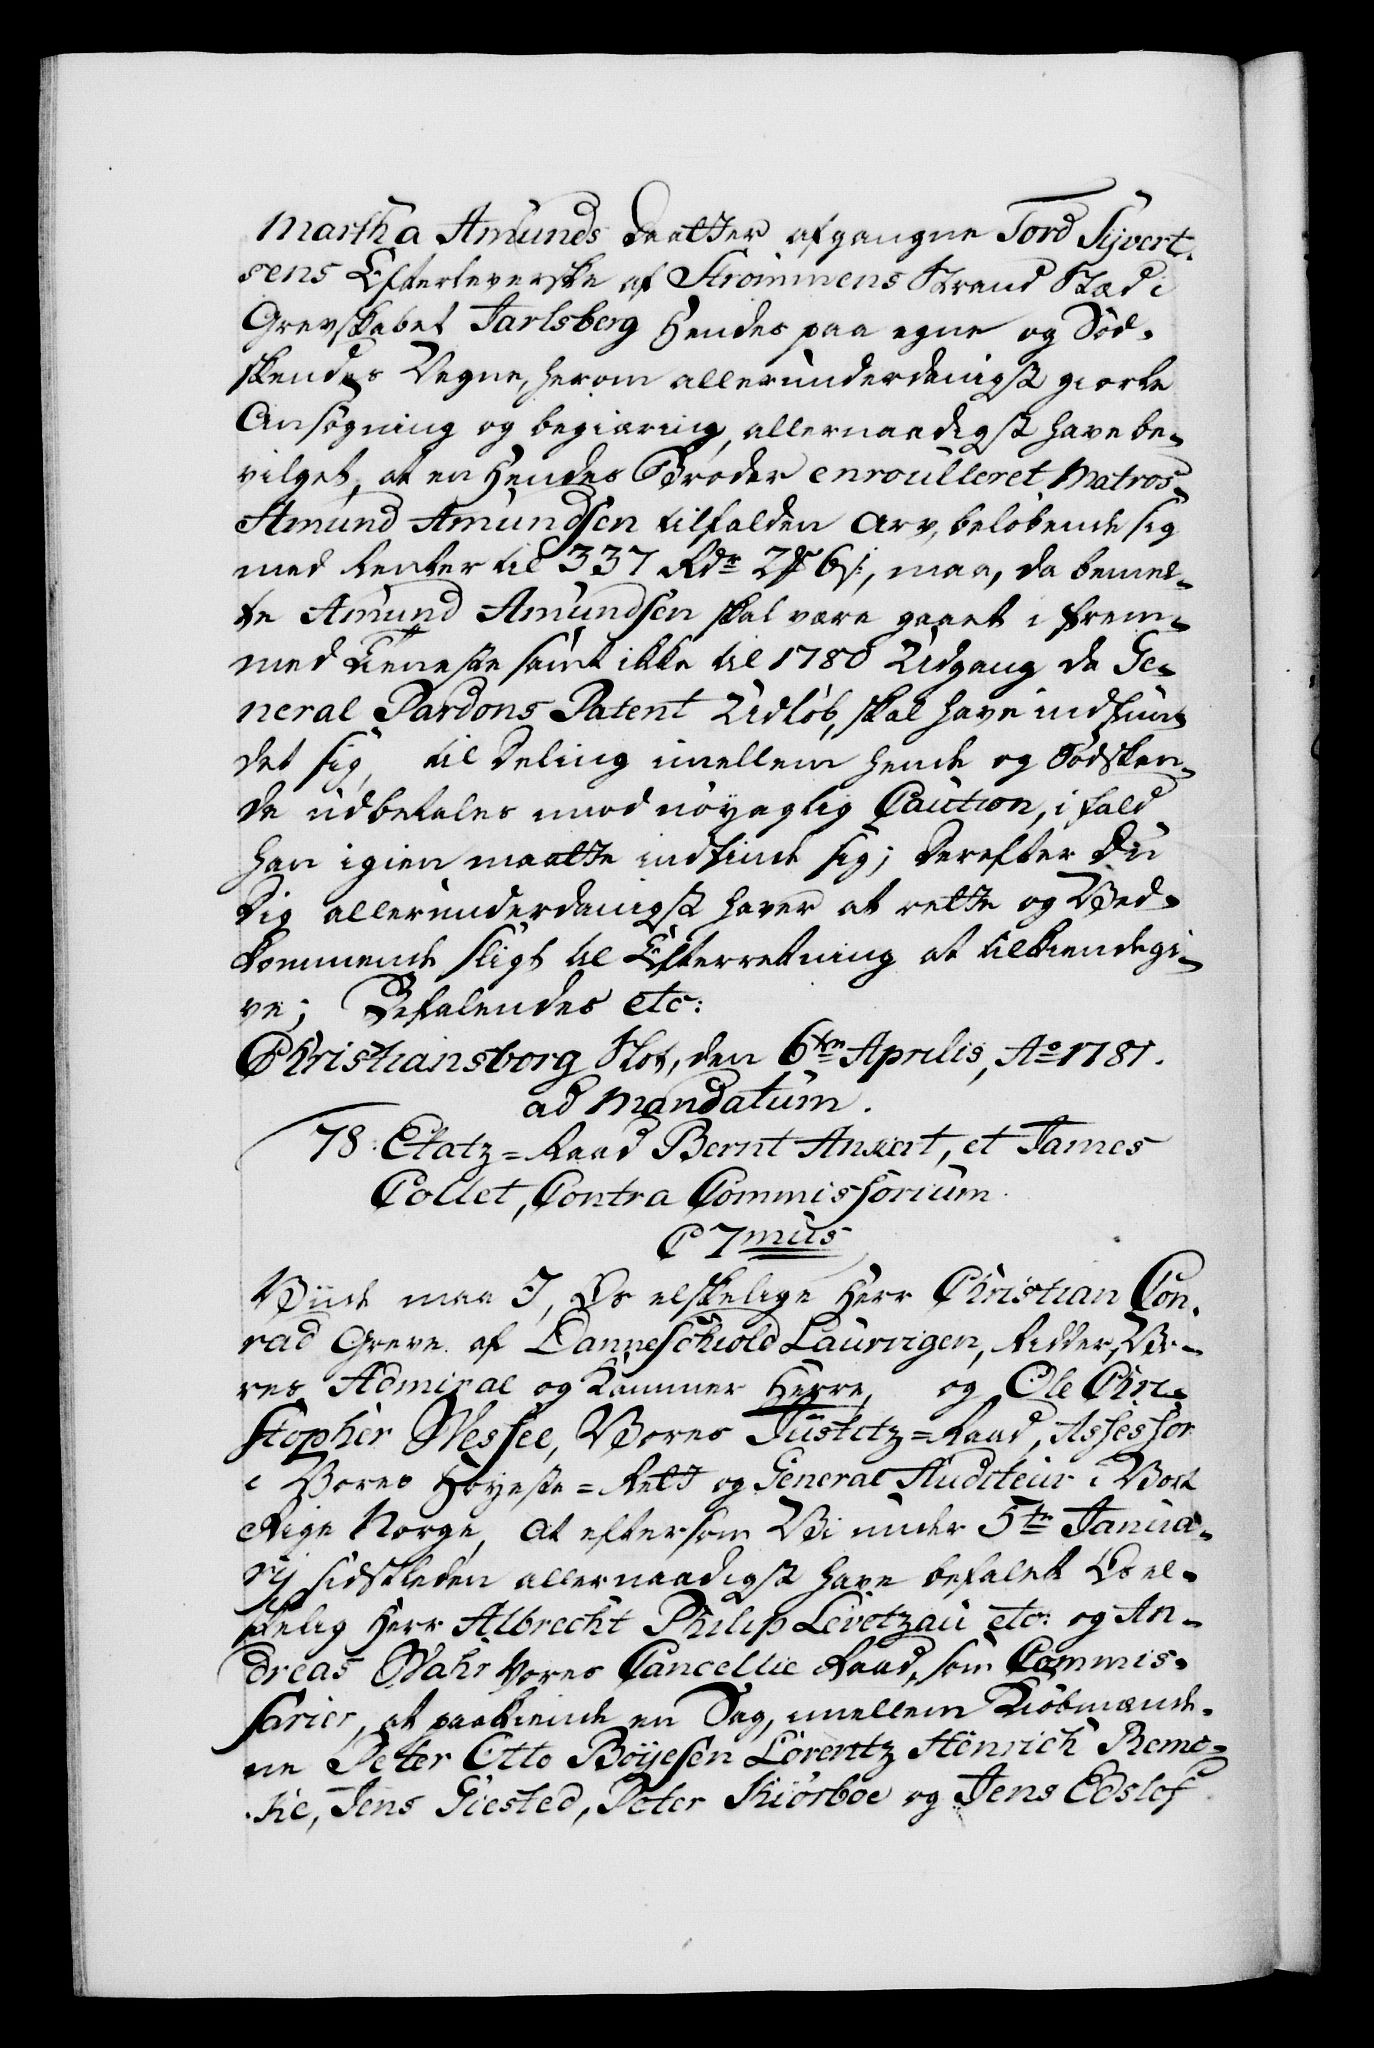 Martha Amunds Daatter afgangne Tord Sÿvert-
sens Efterleverske af Strömmens Strand Stæd i
Grevskabet Jarlsberg Hendes paa egne og Sød-
skendes Vegne, herom allerunderdanigst giorte
Ansøgning og begiæring, allernaadigst have be-
vilget, at en Hendes Broder enroulleret Matros
Amund Amundsen tilfalden Arv, beløbende sig
med Renter til 337 Rdr 2 # 6 s:, maa, da bemel-
te Amund Amundsen skal være gaaet i frem-
med Tieneste samt ikke til 1780 Udgang da Ge-
neral Pardons Patent Udløb, skal have indfun-
det sig, til Deling imellem hende og Sødsken-
de udbetales mod nöyagtig Caution, i fald
han igien maatte indfinde sig; Derefter Du
Dig allerunderdanigst haver at rette og Ved-
kommende sligt til Efterretning at tilkiendegi-
ve; Befalendes etc:
Christiansborg Slot, den 6te Aprilis, Ao 1781.
ad Mandatum.
78: Etatz=Raad Bernt Ankert, et James
Collet, Contra Commissorium.
C 7mus
Viide maa I, Os elskelige Herr Christian Con-
rad Greve af Danneschiold Laurvigen, Ridder, Vo-
res Admiral og Kammer Herre, og Ole Chri-
stopher Wessel, Vores Justitz=Raad, Assessor
i Vores Høyeste=Rett og General Auditeur i Vort
Rige Norge, At eftersom Vi under 5te Janua-
rij sidstleden allernaadigst have befalet Os el-
skelig Herr Albrecht Philip Levetzau etc: og An-
dreas Wahr Vores Cancellie Raad, som Commis-
sarier, at paakiende en Sag, imellem Kiöbmænde-
ne Peter Otto Böyesen Lorentz Henrich Reme-
kie, Jens Giested, Peter Skiörboe og Jens Edslef